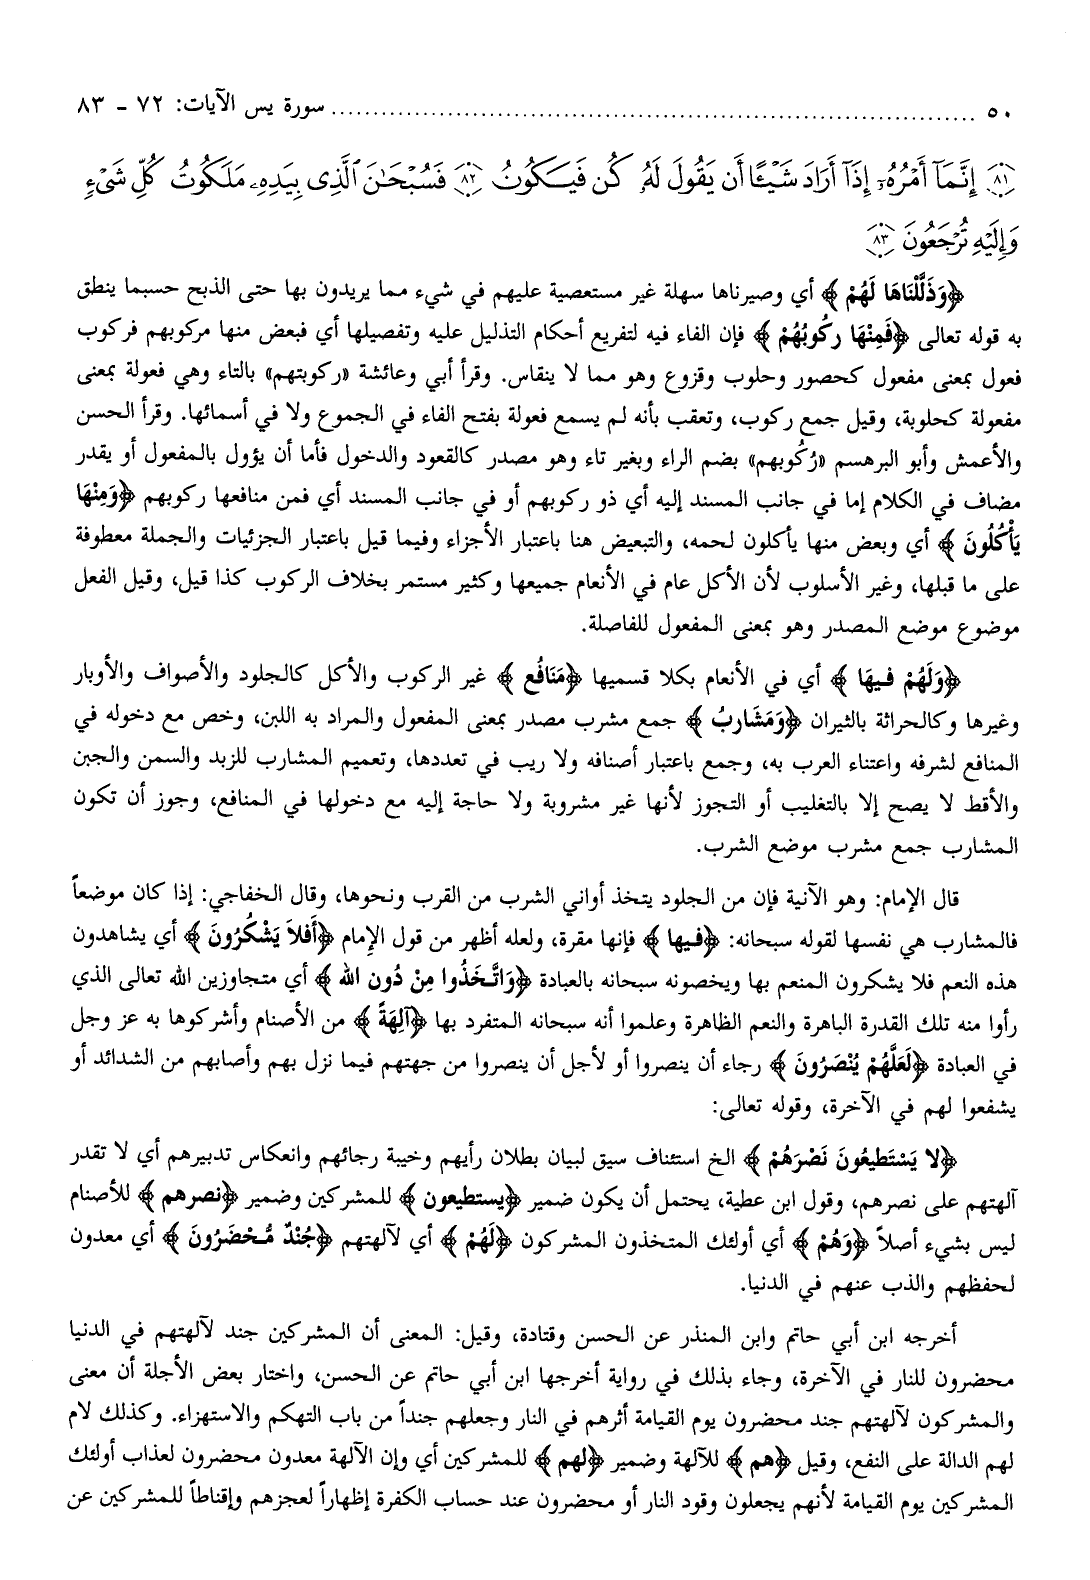 ٥٠ ........................................ سورة يس الآيات: ٧٢ - ٨٣
﴿٨١﴾ إِنَّمَآ أَمْرُهُۥٓ إِذَآ أَرَادَ شَيْـًٔا أَن يَقُولَ لَهُۥ كُن فَيَكُونُ ﴿٨٢﴾ فَسُبْحَـٰنَ ٱلَّذِى بِيَدِهِۦ مَلَكُوتُ كُلِّ شَىْءٍ
وَإِلَيْهِ تُرْجَعُونَ ﴿٨٣﴾
﴿وَذَلَّلْنَاهَا لَهُمْ﴾ أي وصيرناها سهلة غير مستعصية عليهم في شيء مما يريدون بها حتى الذبح حسبما ينطق
به قوله تعالى ﴿فَمِنْهَا رَكُوبُهُمْ﴾ فإن الفاء فيه لتفريع أحكام التذليل عليه وتفصيلها أي فبعض منها مركوبهم فركوب
فعول بمعنى مفعول كحصور وحلوب وقزوع وهو مما لا ينقاس. وقرأ أبي وعائشة «ركوبتهم» بالتاء وهي فعولة بمعنى
مفعولة كحلوبة، وقيل جمع ركوب، وتعقب بأنه لم يسمع فعولة بفتح الفاء في الجموع ولا في أسمائها. وقرأ الحسن
والأعمش وأبو البرهسم «رُكُوبهم» بضم الراء وبغير تاء وهو مصدر كالقعود والدخول فأما أن يؤول بالمفعول أو يقدر
مضاف في الكلام إما في جانب المسند إليه أي ذو ركوبهم أو في جانب المسند أي فمن منافعها ركوبهم ﴿وَمِنْهَا
يَأْكُلُونَ﴾ أي وبعض منها يأكلون لحمه، والتبعيض هنا باعتبار الأجزاء وفيما قيل باعتبار الجزئيات والجملة معطوفة
على ما قبلها، وغير الأسلوب لأن الأكل عام في الأنعام جميعها وكثير مستمر بخلاف الركوب كذا قيل، وقيل الفعل
موضوع موضع المصدر وهو بمعنى المفعول للفاصلة.
﴿وَلَهُمْ فيهَا﴾ أي في الأنعام بكلا قسميها ﴿مَنَافُع﴾ غير الركوب والأكل كالجلود والأصواف والأوبار
وغيرها وكالحراثة بالثيران ﴿وَمَشَاربُ﴾ جمع مشرب مصدر بمعنى المفعول والمراد به اللبن، وخص مع دخوله في
المنافع لشرفه واعتناء العرب به، وجمع باعتبار أصنافه ولا ريب في تعددها، وتعميم المشارب للزبد والسمن والجبن
والأقط لا يصح إلا بالتغليب أو التجوز لأنها غير مشروبة ولا حاجة إليه مع دخولها في المنافع، وجوز أن تكون
المشارب جمع مشرب موضع الشرب.
قال الإمام: وهو الآنية فإن من الجلود يتخذ أواني الشرب من القرب ونحوها، وقال الخفاجي: إذا كان موضعاً
فالمشارب هي نفسها لقوله سبحانه: ﴿فيها﴾ فإنها مقرة، ولعله أظهر من قول الإمام ﴿أَفلاَ يَشْكُرُونَ﴾ أي يشاهدون
هذه النعم فلا يشكرون المنعم بها ويخصونه سبحانه بالعبادة ﴿وَاتَّخَذُوا مِنْ دُون الله﴾ أي متجاوزين الله تعالى الذي
رأوا منه تلك القدرة الباهرة والنعم الظاهرة وعلموا أنه سبحانه المتفرد بها ﴿آلِهَةً﴾ من الأصنام وأشركوها به عز وجل
في العبادة ﴿لَعَلَّهُمْ يُنْصَرُونَ﴾ رجاء أن ينصروا أو لأجل أن ينصروا من جهتهم فيما نزل بهم وأصابهم من الشدائد أو
يشفعوا لهم في الآخرة، وقوله تعالى:
﴿لا يَسْتَطيعُونَ نَصْرَهُمْ﴾ الخ استئناف سيق لبيان بطلان رأيهم وخيبة رجائهم وانعكاس تدبيرهم أي لا تقدر
آلهتهم على نصرهم، وقول ابن عطية، يحتمل أن يكون ضمير ﴿يستطيعون﴾ للمشركين وضمير ﴿نصرهم﴾ للأصنام
ليس بشيء أصلاً ﴿وَهُمْ﴾ أي أولئك المتخذون المشركون ﴿لَهُمْ﴾ أي لآلهتهم ﴿جُنْدٌ مُّحْضَرُونَ﴾ أي معدون
لحفظهم والذب عنهم في الدنيا.
أخرجه ابن أبي حاتم وابن المنذر عن الحسن وقتادة، وقيل: المعنى أن المشركين جند لآلهتهم في الدنيا
محضرون للنار في الآخرة، وجاء بذلك في رواية أخرجها ابن أبي حاتم عن الحسن، واختار بعض الأجلة أن معنى
والمشركون لآلهتهم جند محضرون يوم القيامة أثرهم في النار وجعلهم جنداً من باب التهكم والاستهزاء. وكذلك لام
لهم الدالة على النفع، وقيل ﴿هم﴾ للآلهة وضمير ﴿لهم﴾ للمشركين أي وإن الآلهة معدون محضرون لعذاب أولئك
المشركين يوم القيامة لأنهم يجعلون وقود النار أو محضرون عند حساب الكفرة إظهاراً لعجزهم وإقناطاً للمشركين عن